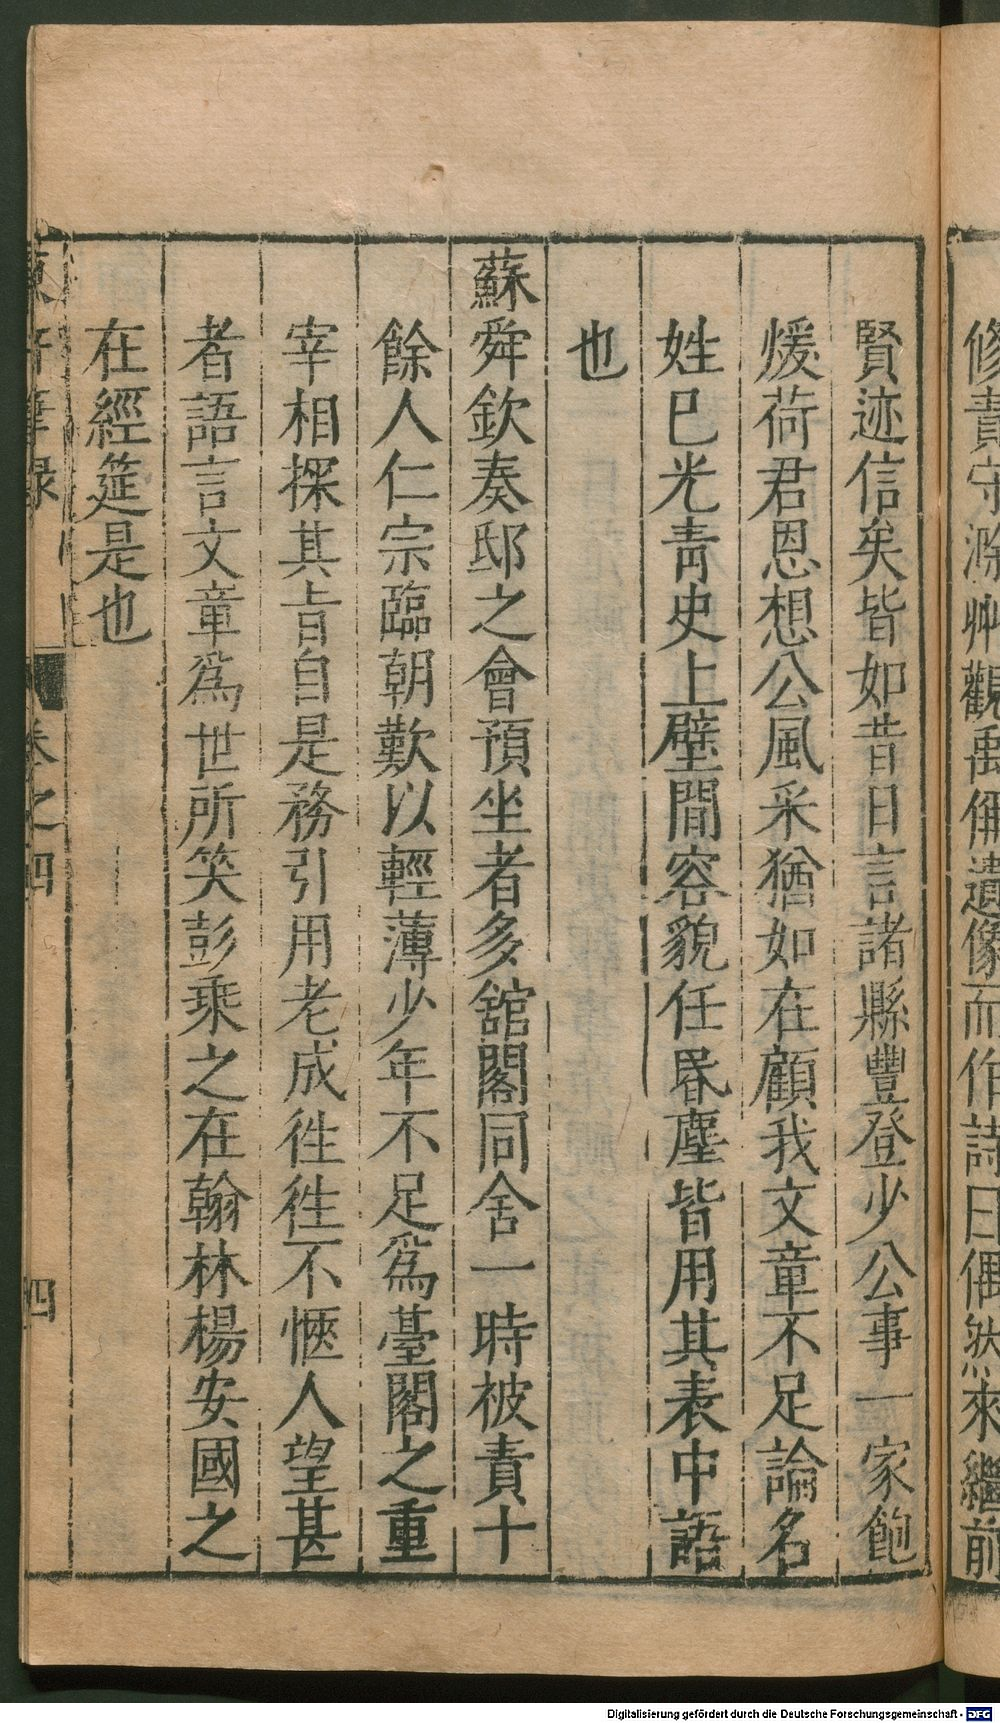 修責守滁州觀禹偁遺像而作詩曰偶然來繼前
賢迹信矣皆如昔日言諸縣豐登少公事一家飽
煖荷君恩想公風采猶如在顧我文章不足論名
姓已光青史上壁間容貌任昬塵皆用其表中語
也
蘇舜欽奏邸之會預坐者多舘閣同舍一時被責十
餘人仁宗臨朝歎以輕薄少年不足爲臺閣之重
宰相探其旨自是務引用老成徃徃不愜人望甚
者語言文章爲世所笑彭乘之在翰林楊安國之
在經筵是也
東軒筆録 卷之四 四
Digitalisierung gefördert durch die Deutsche Forschungsgemeinschaft - DFG